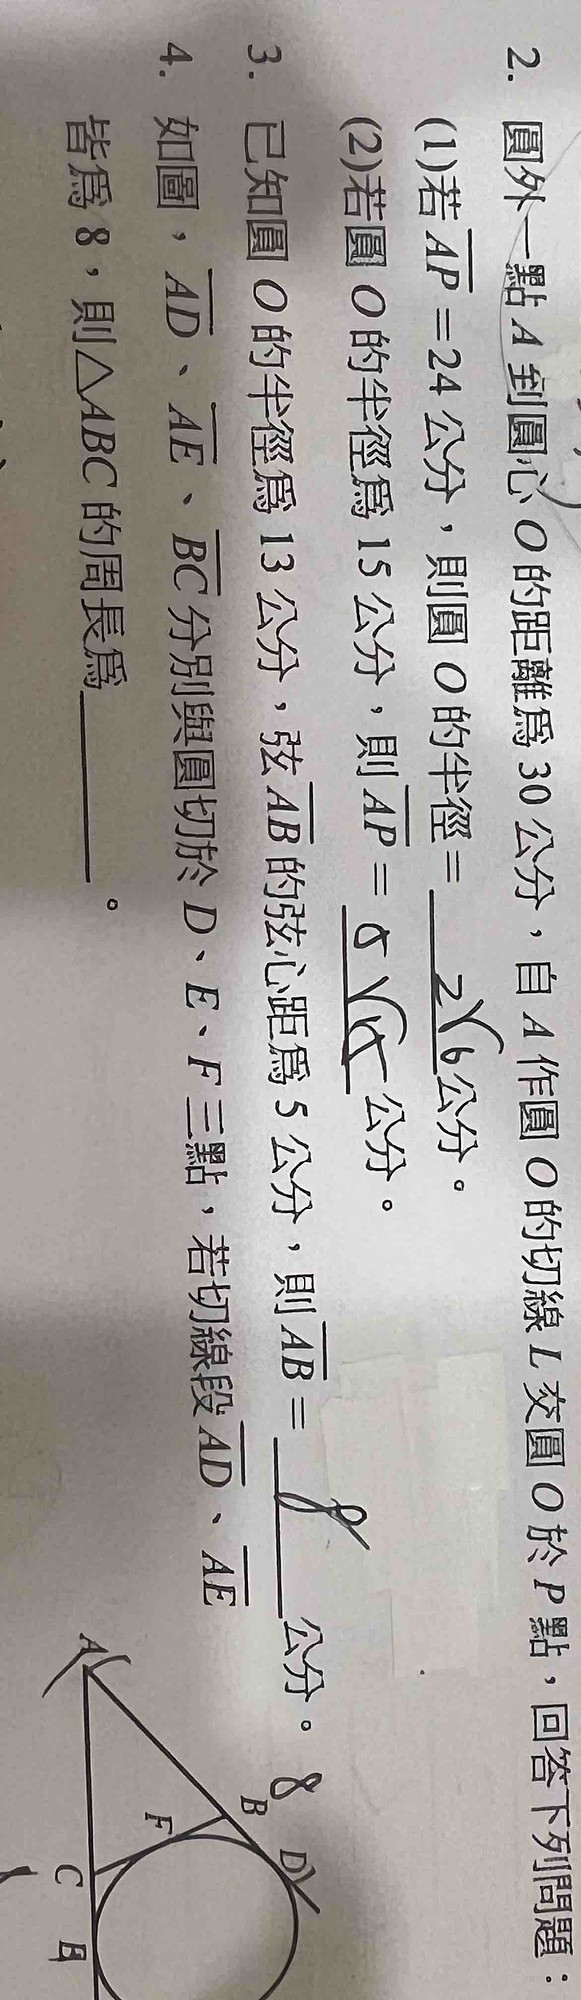 2. 圓外一點 A 到圓心 O 的距離為 30 公分，自 A 作圓 O 的切線 L 交圓 O 於 P 點，回答下列問題：
(1)若 AP = 24 公分，則圓 O 的半徑 = 2√6 公分。
(2)若圓 O 的半徑為 15 公分，則 AP = 5√15 公分。
3. 已知圓 O 的半徑為 13 公分，弦 AB 的弦心距為 5 公分，則 AB = 8 公分。
4. 如圖，AD、AE、BC 分別與圓切於 D、E、F 三點，若切線段 AD、AE
皆為 8，則△ABC 的周長為＿＿＿＿。
8
A
B
D
F
C
E